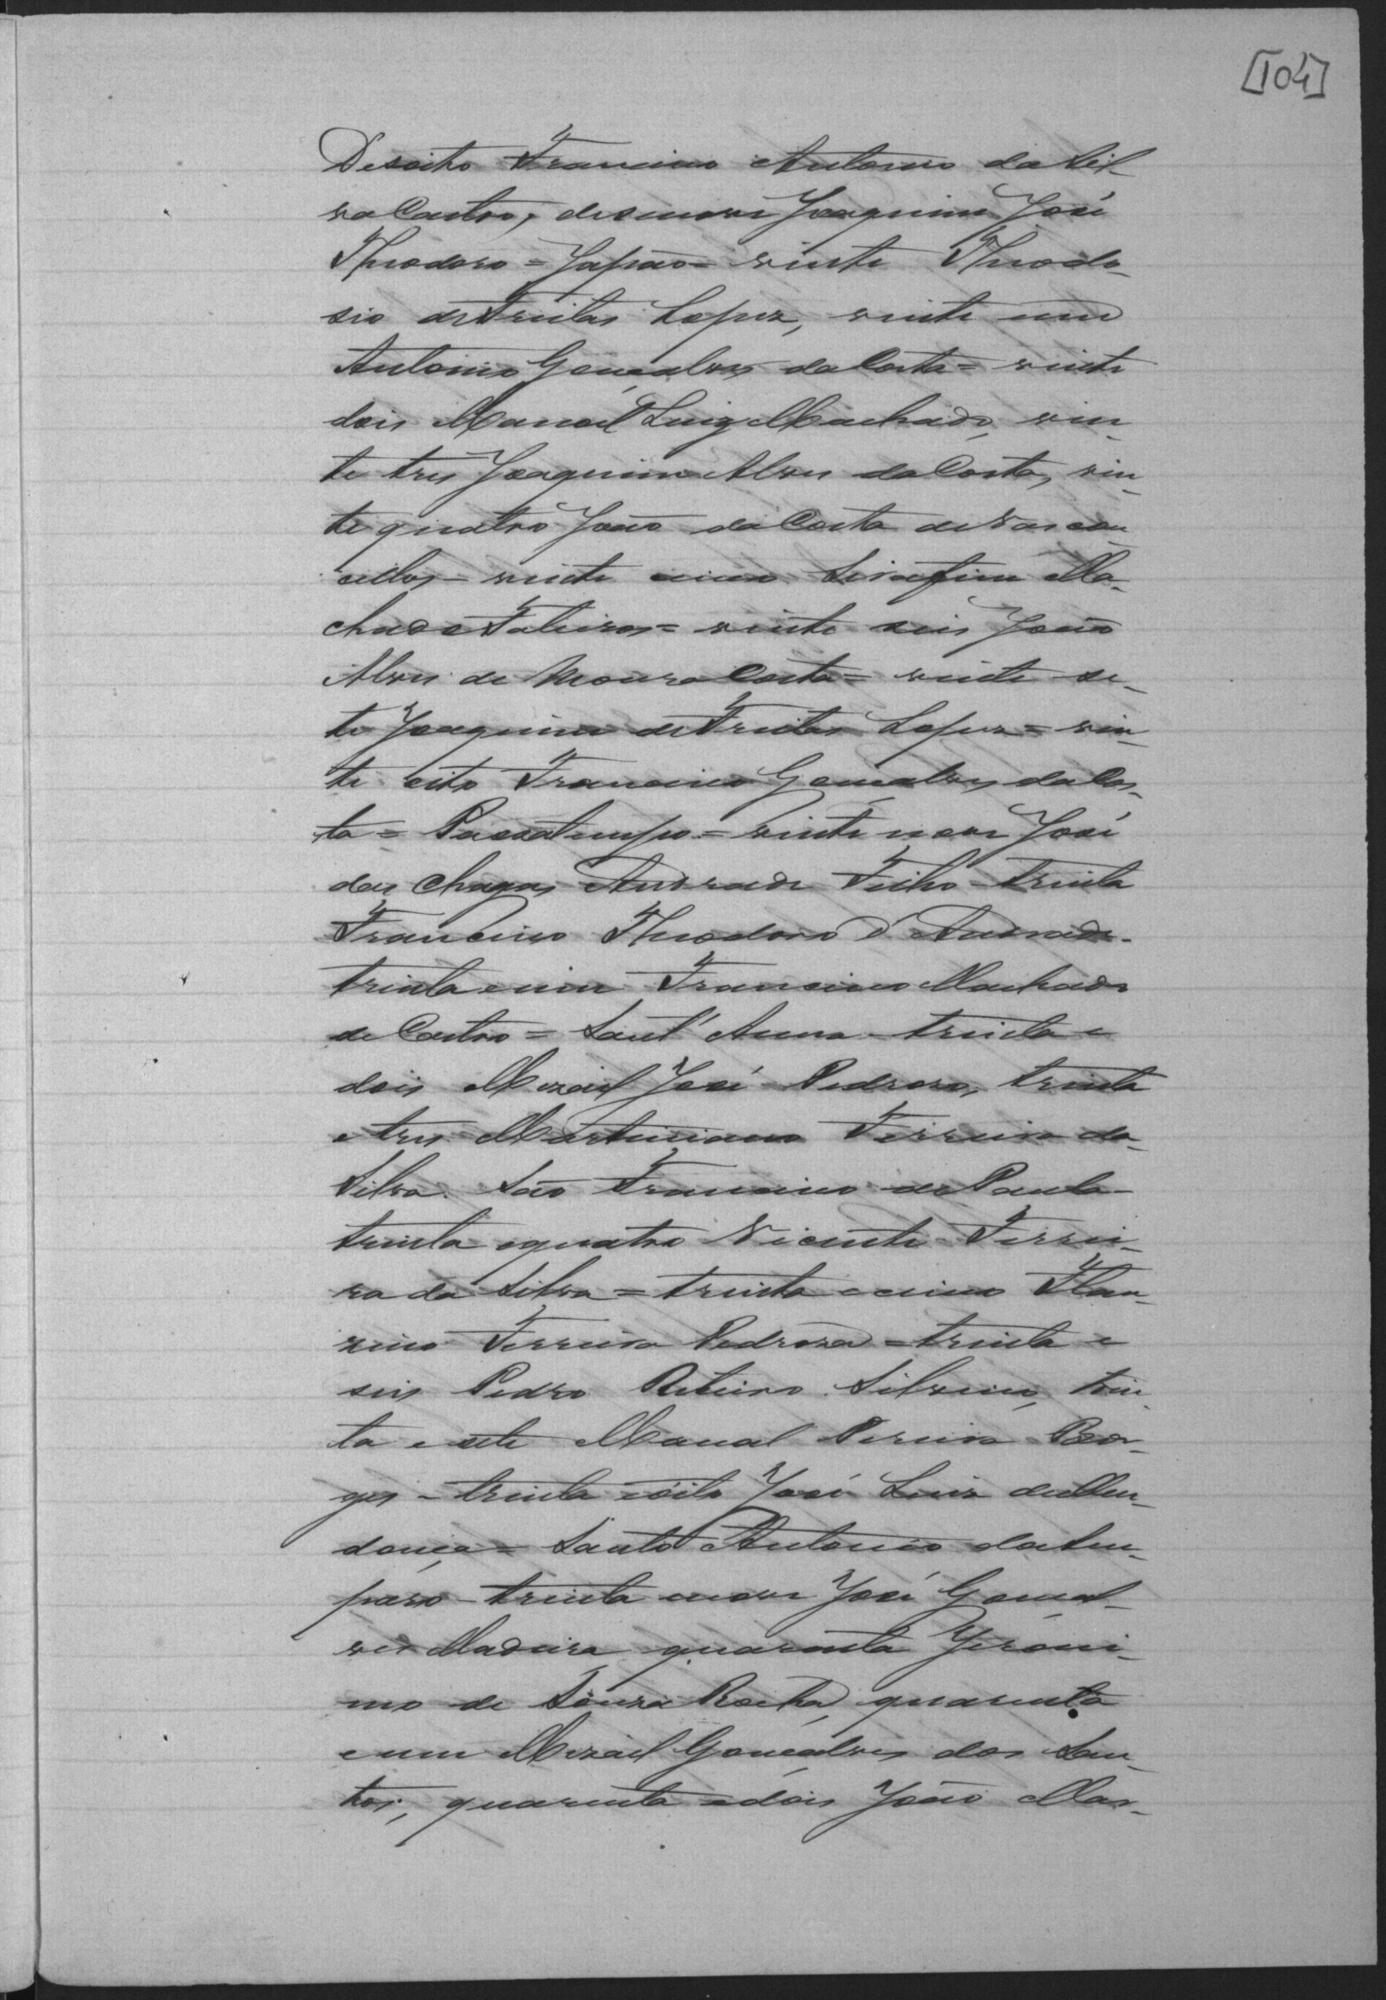 [104]
Desoito Francisco Antonio da Sil-
va Castro, desenove Joaquim José
Theodoro = Japão = vinte Theodo-
sio de Freitas Lopes, vinte um
Antonio Gonçalves da Costa = vinte
dois Manoel Luiz Machado, vin-
te tres Joaquim Alves da Costa, vin-
te quatro João da Costa de Vascon-
cellos - vinte cinco Serafim Ma-
chado = vinte seis João
Alves de Moura Costa = vinte se-
te Joaquim de Freitas Lopes = vin-
te oito Francisco Gonçalves da Cos-
ta = Passatempo = vinte nove José
das Chagas Andrade Filho - trinta
Francisco Theodoro d'Andrade -
trinta e um Francisco Machado
de Castro = Sant'Anna - trinta e
dois Mizael José Pedroso, trinta
e tres Martiniano Ferreira da
Silva. São Francisco de Paula -
trinta e quatro Vicente Ferrei-
ra da Silva = trinta e cinco
Ferreira Pedroza = trinta e
seis Pedro Ribeiro Silverio, trin-
ta e sete Manoel Pereira Bor-
ges - trinta e oito José Luiz de Men-
donça = Santo Antonio do Am-
paro - trinta e nove José Gonçal-
ves Madeira quarenta Jeroni-
mo de Souza Rocha, quarenta
e um Mizael Gonçalves dos San-
tos, quarenta e dois João Mar-